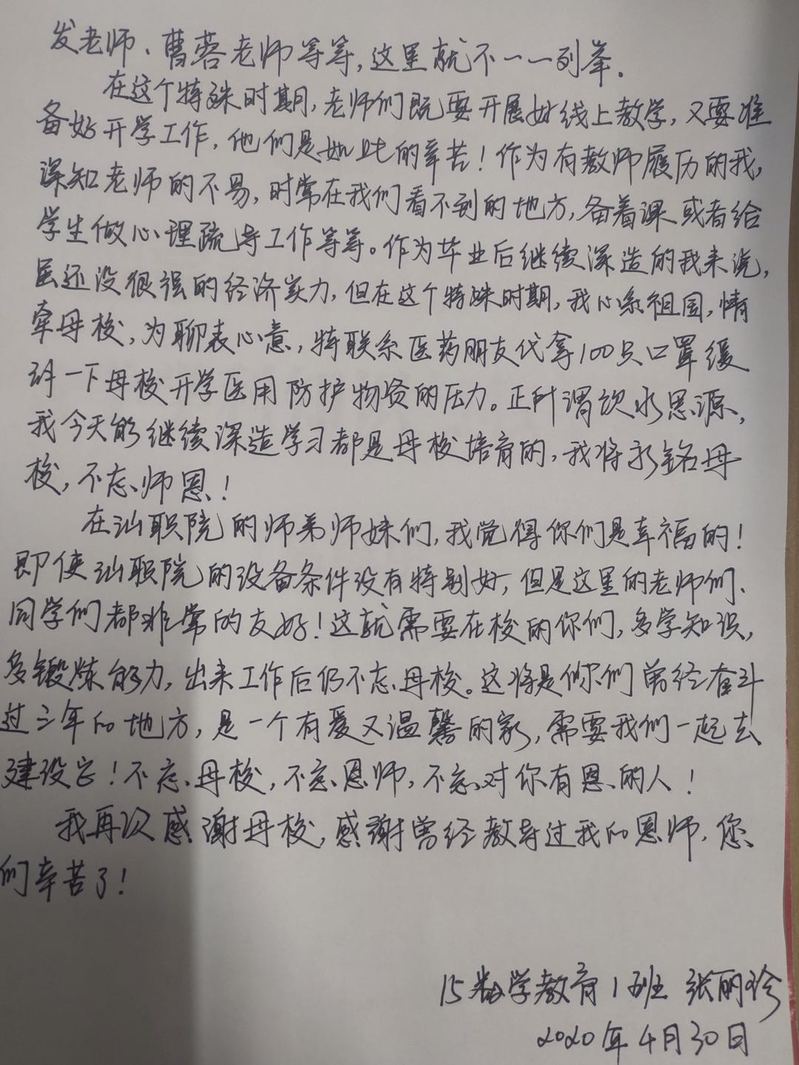 发老师、曹蓉老师等等,这里就不一一列举。
在这个特殊时期,老师们既要开展好线上教学,又要准
备好开学工作,他们是如此的辛苦!作为有教师履历的我,
深知老师的不易,时常在我们看不到的地方,备着课或者给
学生做心理疏导工作等等。作为毕业后继续深造的我来说,
虽还没很强的经济实力,但在这个特殊时期,我心系祖国,情
牵母校,为聊表心意,特联系医药朋友代拿100只口罩缓
解一下母校开学医用防护物资的压力。正所谓饮水思源,
我今天能继续深造学习都是母校培育的,我将永铭母
校,不忘师恩!
在汕职院的师弟师妹们,我觉得你们是幸福的!
即使汕职院的设备条件没有特别好,但是这里的老师们、
同学们都非常的友好!这就需要在校的你们,多学知识,
多锻炼能力,出来工作后仍不忘母校。这将是你们曾经奋斗
过三年的地方,是一个有爱又温馨的家,需要我们一起去
建设它!不忘母校,不忘恩师,不忘对你有恩的人!
我再次感谢母校,感谢曾经教导过我的恩师,您
们辛苦了!
15数学教育1班 张丽珍
2020年4月30日